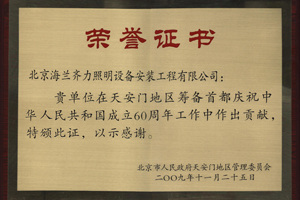 荣誉证书
北京海兰齐力照明设备安装工程有限公司：
贵单位在天安门地区筹备首都庆祝中
华人民共和国成立60周年工作中作出贡献，
特颁此证，以示感谢。
北京市人民政府天安门地区管理委员会
二〇〇九年十一月二十五日